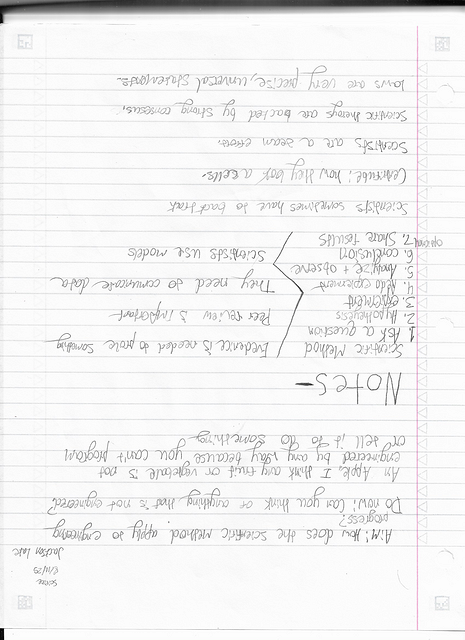 Jackson Lane
Aim: How does the scientific method apply to engineering
progress?
Do now: Can you think of anything that is not engineered?
An Apple. I think any fruit or vegetable is not
engineered by any way because you can't program
or tell it to do something
Notes-
Scientific Method
1. Ask a question
2. Hypothesis
3. experiment
4. Redo experiment
5. Analyze + observe
6. Conclusion
7. Share results
optional
Evidence is needed to prove something
Peer review is important
They need to communicate data
Scientists use models
Scientists sometimes have to back track
how they look
Scientists are a team effort.
Scientific theorys are backed by strong consensus.
laws are very precise, universal statements.